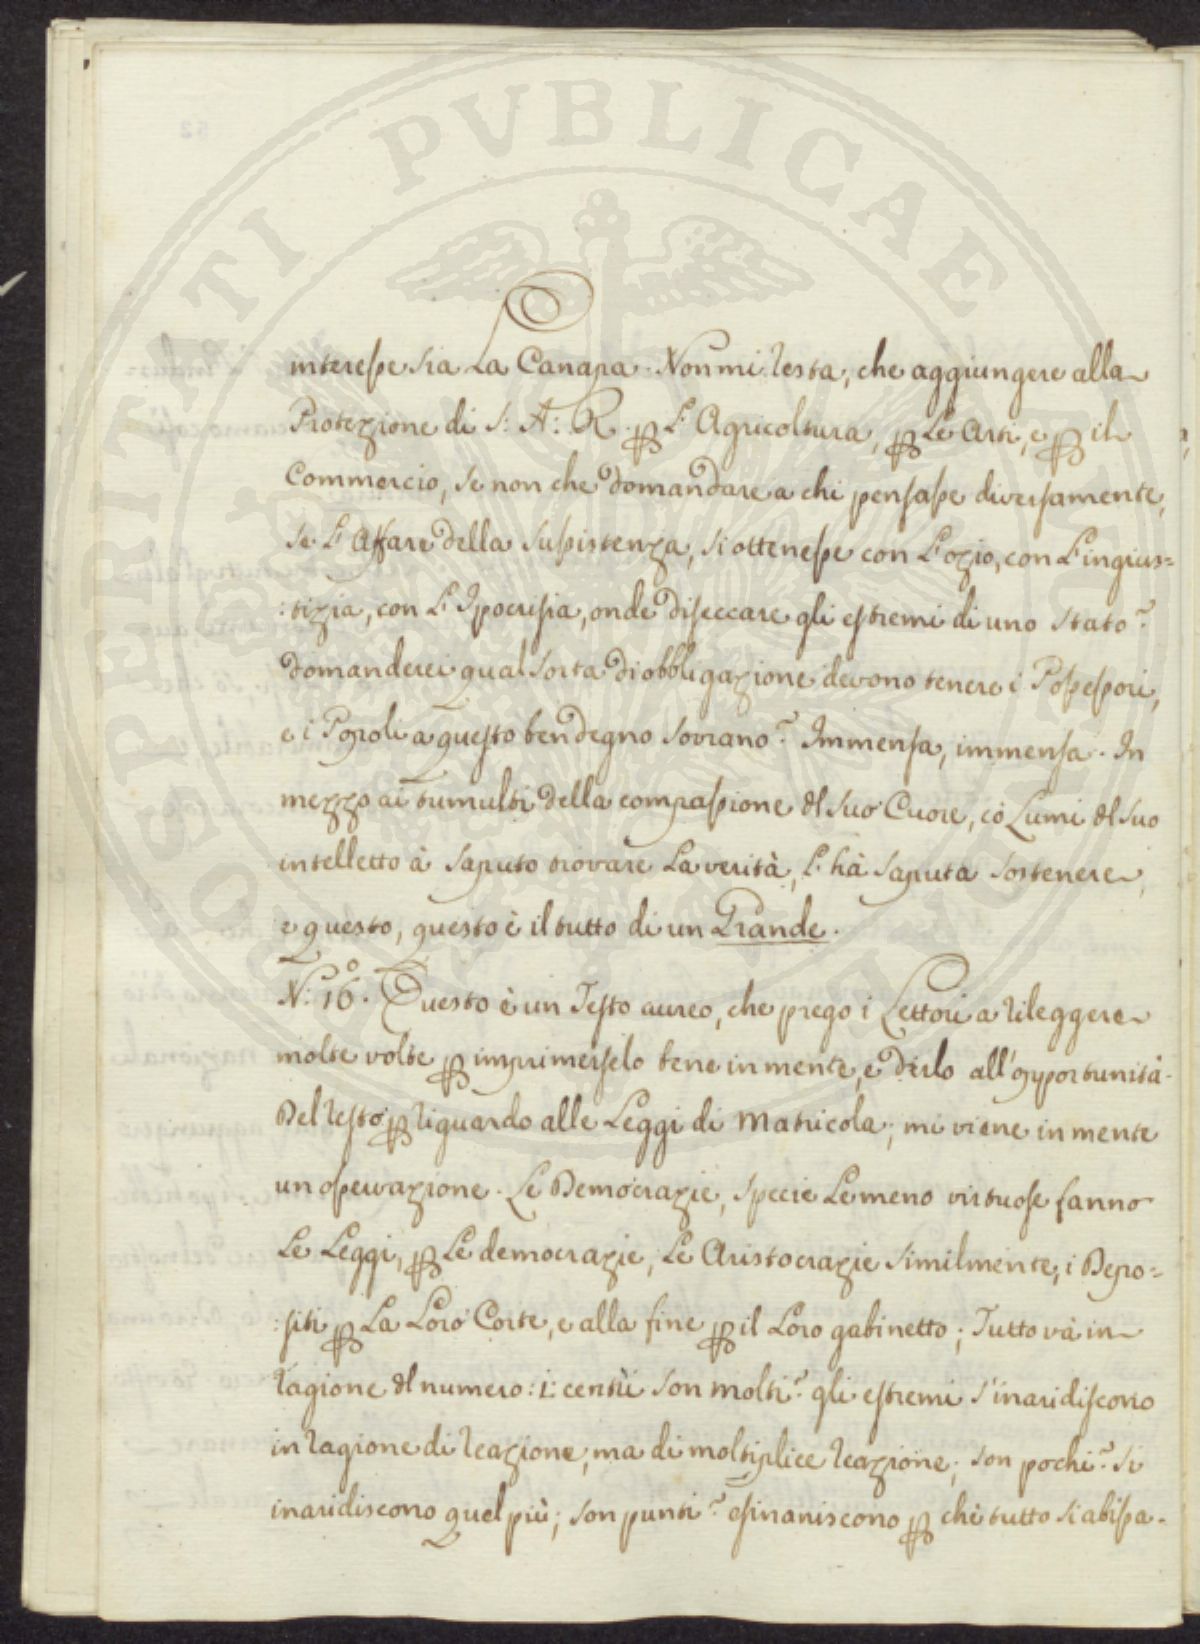 PROSPERITATI PVBLICAE AVGENDAE
interesse sia La Canapa. Non mi resta, che aggiungere alla
Protezione di S: A: R. per L'Agricoltura, per Le Arti, e per il
Commercio, se non che domandare a chi pensasse diversamente,
se L'Affare della Sussistenza, si ottenesse con L'ozio, con L'ingius=
:tizia, con L'Ipocrisia, onde diseccare gli estremi di uno Stato?
domanderei qual sorta di obbligazione devono tenere i Possessori,
e i Popoli a questo ben degno Sovrano? Immensa, immensa. In
mezzo ai tumulti della compassione del suo Cuore, cò Lumi del suo
intelletto à saputo trovare La verità, L'hà saputa sostenere,
e questo, questo è il tutto di un Grande.
N: 16.° Questo è un Testo aureo, che prego i Lettori a rileggere
molte volte per imprimerselo bene in mente, e dirlo all'opportunità.
Del resto per riguardo alle Leggi di Matricola, mi viene in mente
un osservazione. Le Democrazie, specie Le meno virtuose fanno
Le Leggi, per Le democrazie, Le Aristocrazie similmente, i Depo=
:siti per La Loro Corte, e alla fine per il Loro gabinetto; Tutto và in
ragione del numero: i centri son molti? gli estremi s'inaridiscono
in ragione di reazione, ma di moltiplice reazione; son pochi? si
inaridiscono quel più; son punti? esinaniscono per chè tutto si abissa.